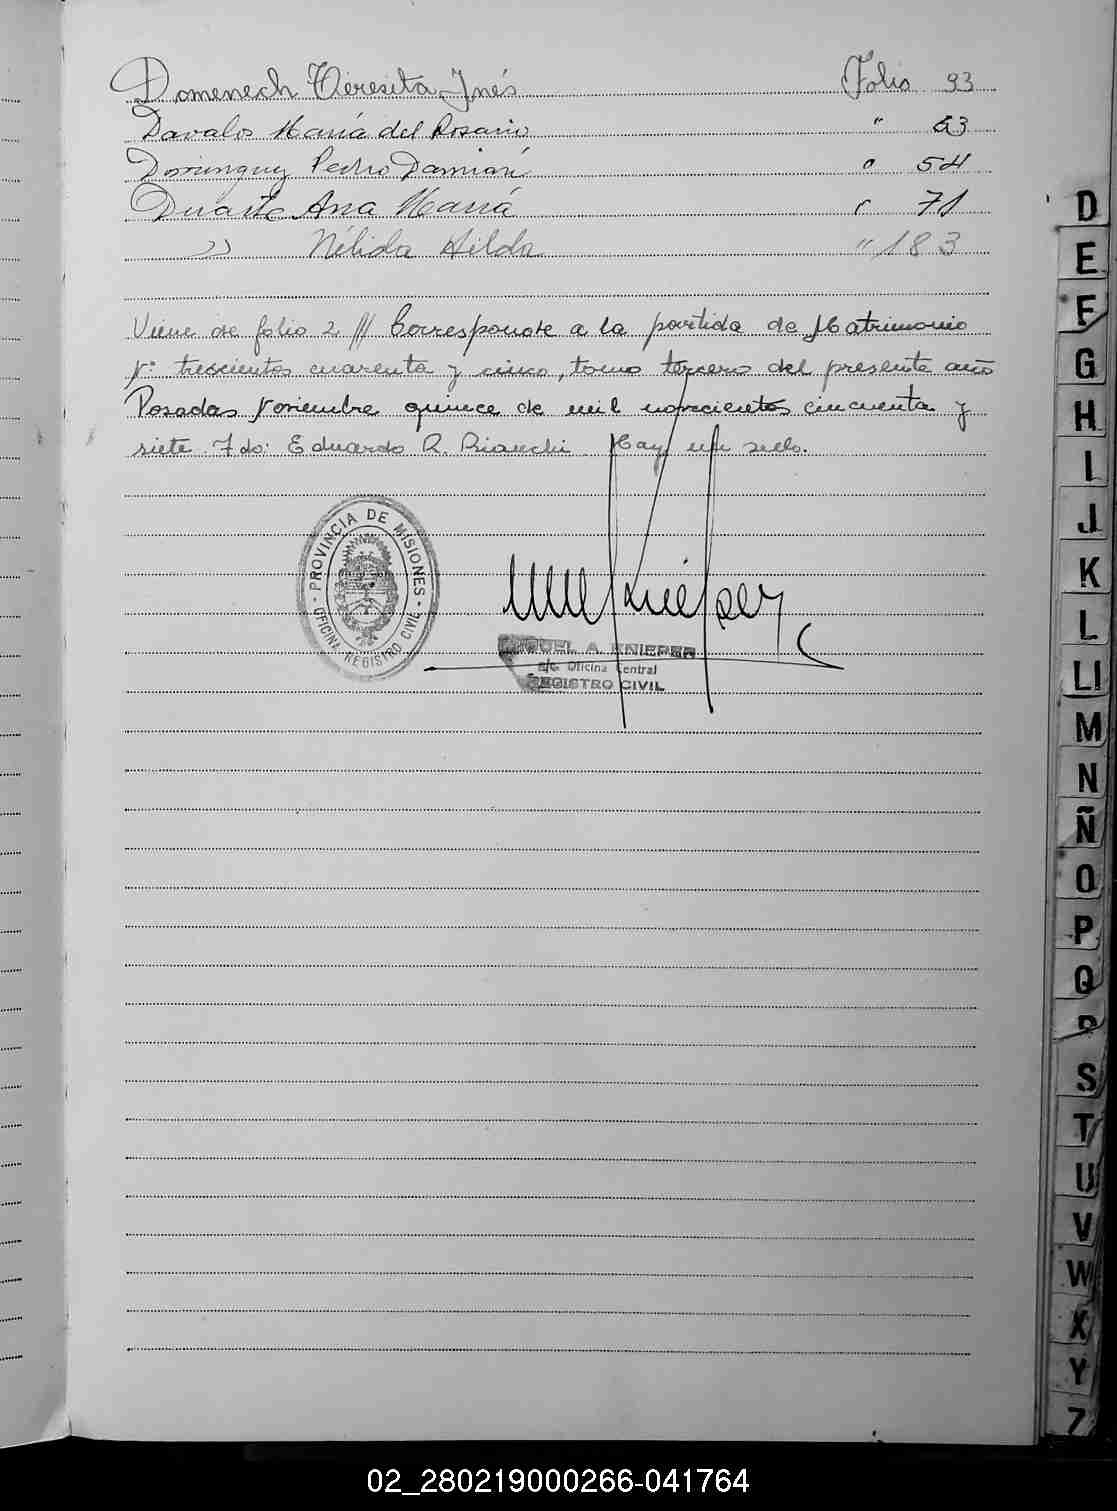 Domenech Teresita Inés Folio 93
Davalos María del Rosario " 63
Dominguez Pedro Damian " 54
Duarte Ana María " 71
" Nélida Hilda " 183
Viene de folio 2 // Corresponde a la partida de Matrimonio
Nº trescientos cuarenta y cinco, tomo tercero del presente año
Posadas Noviembre quince de mil novecientos cincuenta y
siete. Fdo: Eduardo R. Bianchi. Hay un sello.
PROVINCIA DE MISIONES
OFICINA REGISTRO CIVIL
MIGUEL A. KNIEPER
a/c. Oficina Central
REGISTRO CIVIL
D
E
F
G
H
I
J
K
L
Ll
M
N
Ñ
O
P
Q
R
S
T
U
V
W
X
Y
Z
02_280219000266-041764